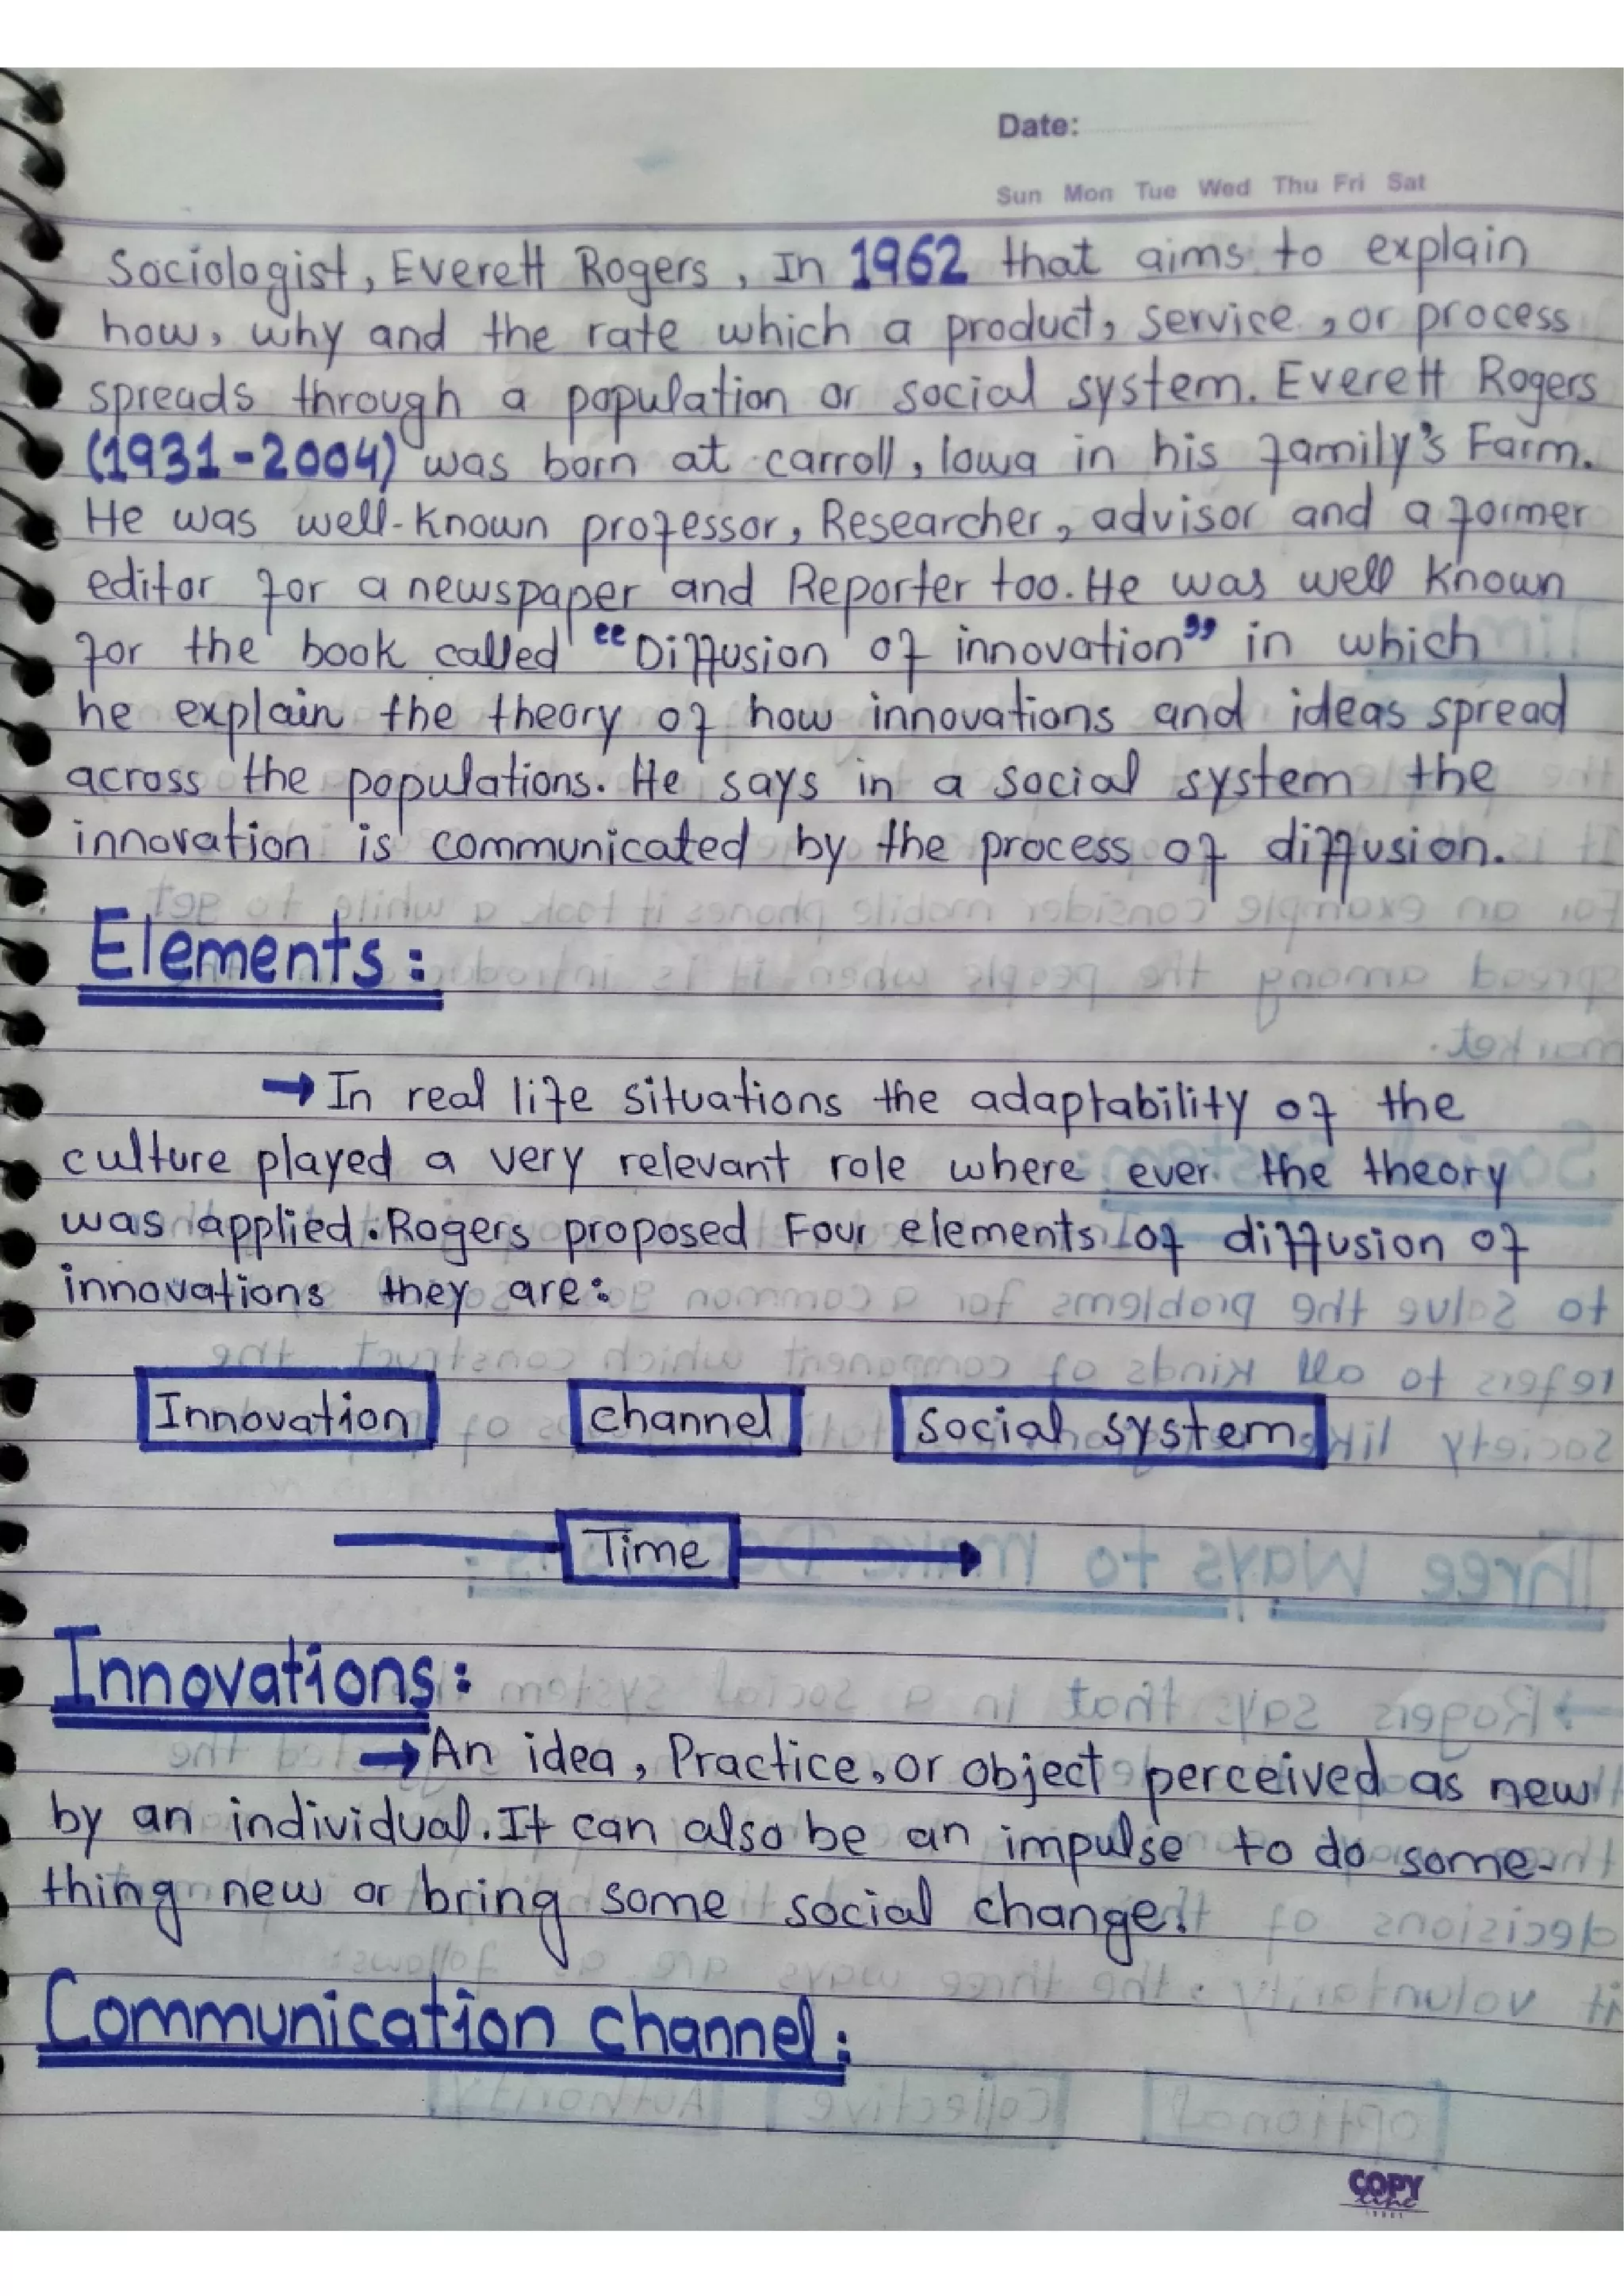 Date:
Sun Mon Tue Wed Thu Fri Sat
Sociologist, Everett Rogers, In 1962 that aims to explain
how, why and the rate which a product, service, or process
spreads through a population or social system. Everett Rogers
(1931-2004) was born at carroll, Iowa in his family's Farm.
He was well-known professor, Researcher, advisor and a former
editor for a newspaper and Reporter too. He was well known
for the book called "Diffusion of innovation" in which
he explain the theory of how innovations and ideas spread
across the populations. He says in a social system the
innovation is communicated by the process of diffusion.
Elements:
→ In real life situations the adaptability of the
culture played a very relevant role where ever the theory
was applied. Rogers proposed Four elements of diffusion of
innovations they are:
Innovation channel social system
Time
Innovations:
→ An idea, Practice, or object perceived as new
by an individual. It can also be an impulse to do some-
thing new or bring some social change.
Communication channel:
COPY